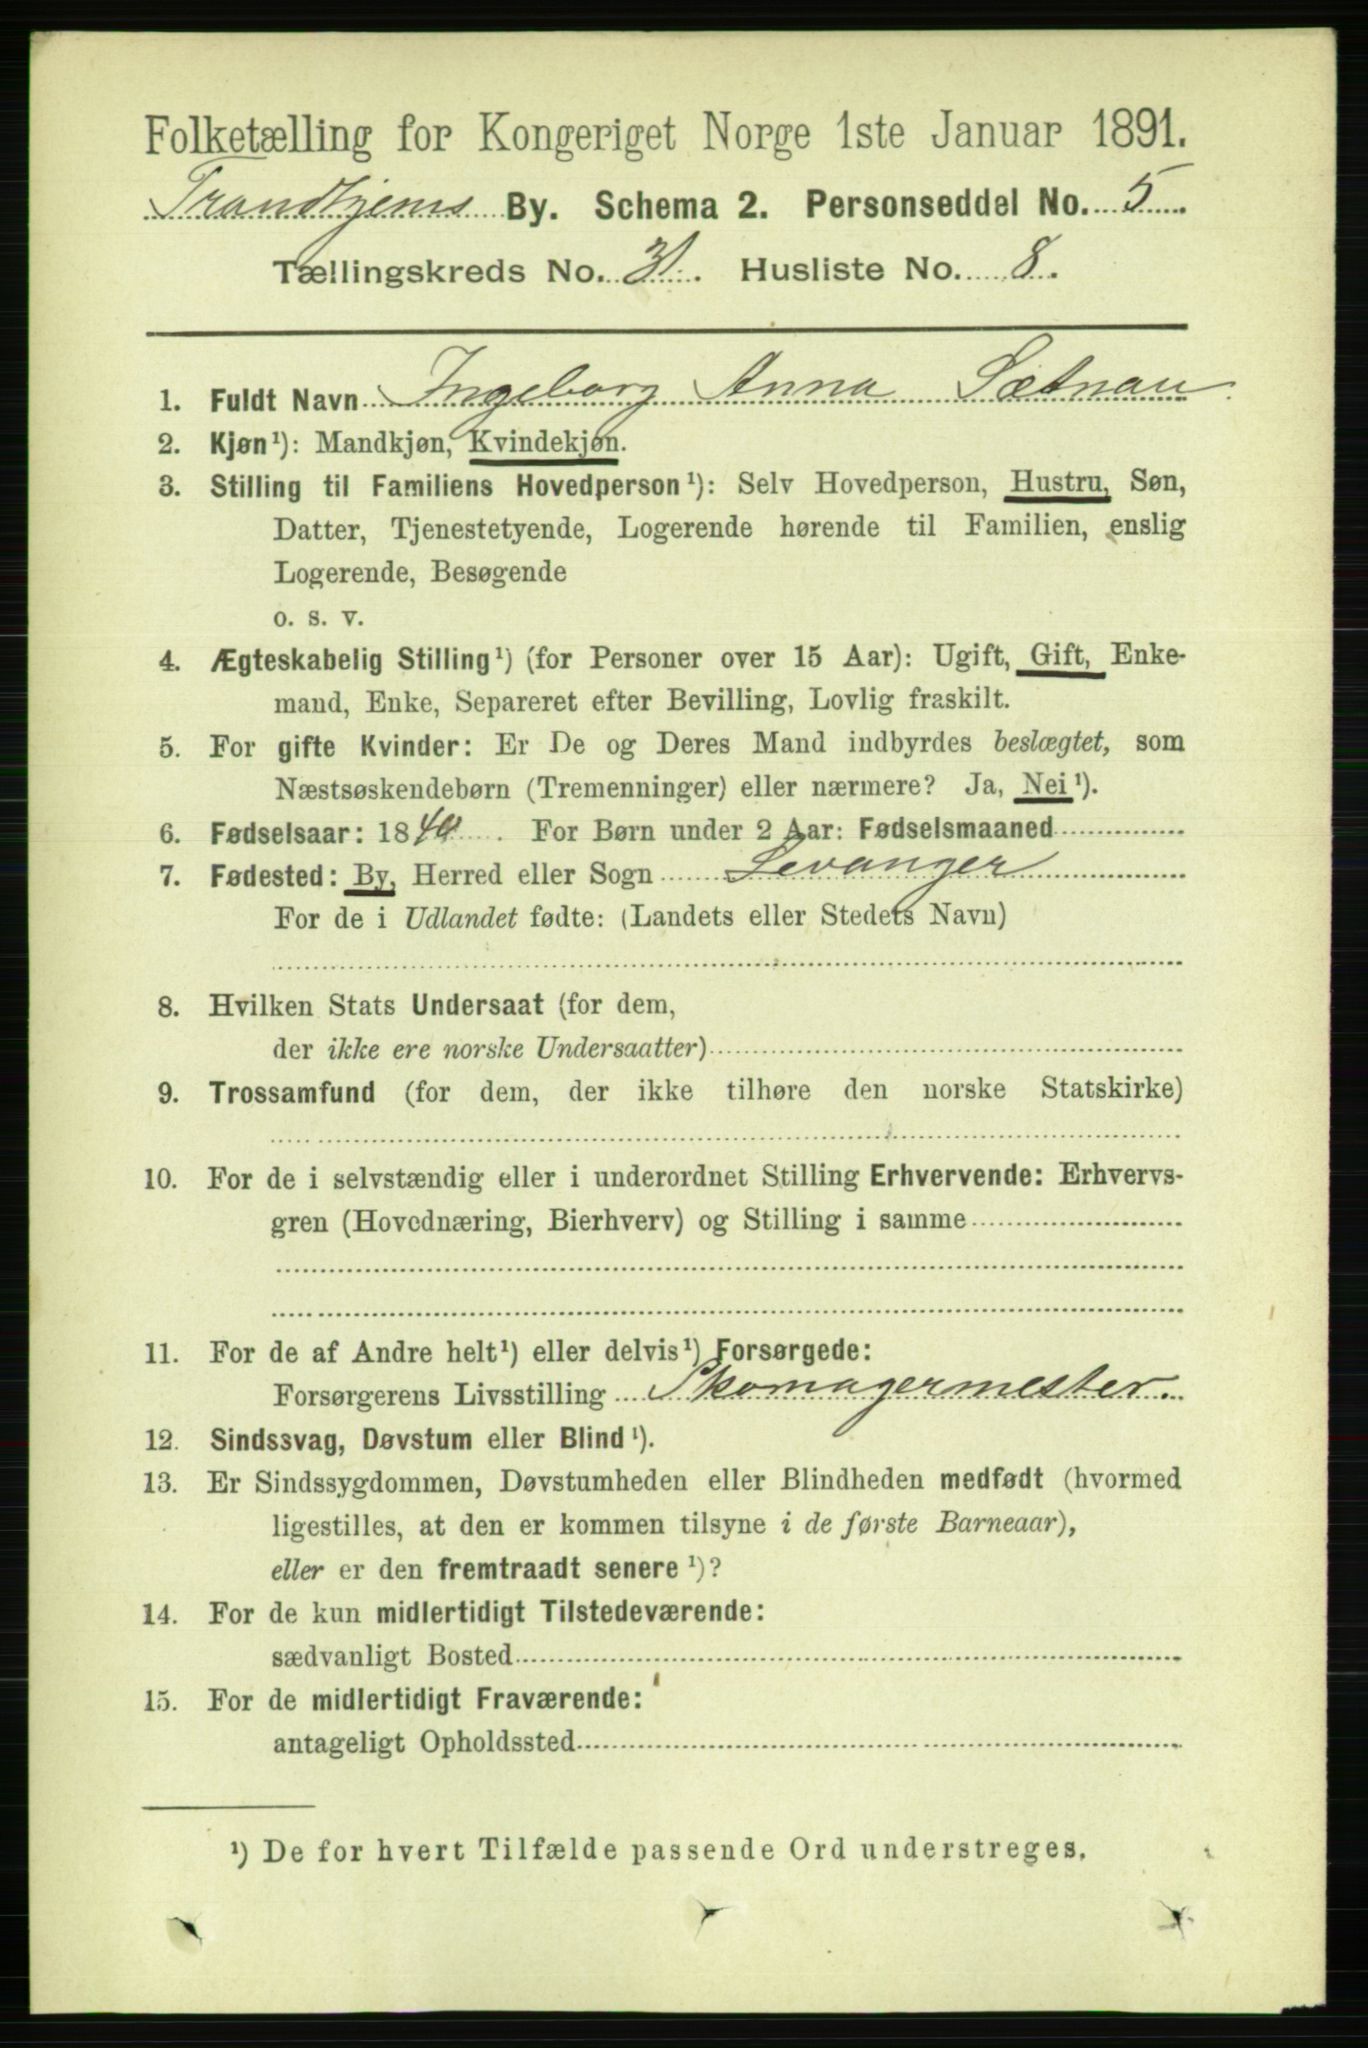 Folketælling for Kongeriget Norge 1ste Januar 1891.
Trondhjems By. Schema 2. Personseddel No. 5.
Tællingskreds No. 31. Husliste No. 8.
1. Fuldt Navn Ingeborg Anna Sætnan
2. Kjøn¹): Mandkjøn, Kvindekjøn.
3. Stilling til Familiens Hovedperson¹): Selv Hovedperson, Hustru, Søn,
Datter, Tjenestetyende, Logerende hørende til Familien, enslig
Logerende, Besøgende
o. s. v.
4. Ægteskabelig Stilling¹) (for Personer over 15 Aar): Ugift, Gift, Enke-
mand, Enke, Separeret efter Bevilling, Lovlig fraskilt.
5. For gifte Kvinder: Er De og Deres Mand indbyrdes beslægtet, som
Næstsøskendebørn (Tremenninger) eller nærmere? Ja, Nei¹).
6. Fødselsaar: 1840. For Børn under 2 Aar: Fødselsmaaned
7. Fødested: By, Herred eller Sogn Levanger
For de i Udlandet fødte: (Landets eller Stedets Navn)
8. Hvilken Stats Undersaat (for dem,
der ikke ere norske Undersaatter)
9. Trossamfund (for dem, der ikke tilhøre den norske Statskirke)
10. For de i selvstændig eller i underordnet Stilling Erhvervende: Erhvervs-
gren (Hovednæring, Bierhverv) og Stilling i samme
11. For de af Andre helt¹) eller delvis¹) Forsørgede:
Forsørgerens Livsstilling Skomagermester.
12. Sindssvag, Døvstum eller Blind¹).
13. Er Sindssygdommen, Døvstumheden eller Blindheden medfødt (hvormed
ligestilles, at den er kommen tilsyne i de første Barneaar),
eller er den fremtraadt senere¹)?
14. For de kun midlertidigt Tilstedeværende:
sædvanligt Bosted
15. For de midlertidigt Fraværende:
antageligt Opholdssted
¹) De for hvert Tilfælde passende Ord understreges.